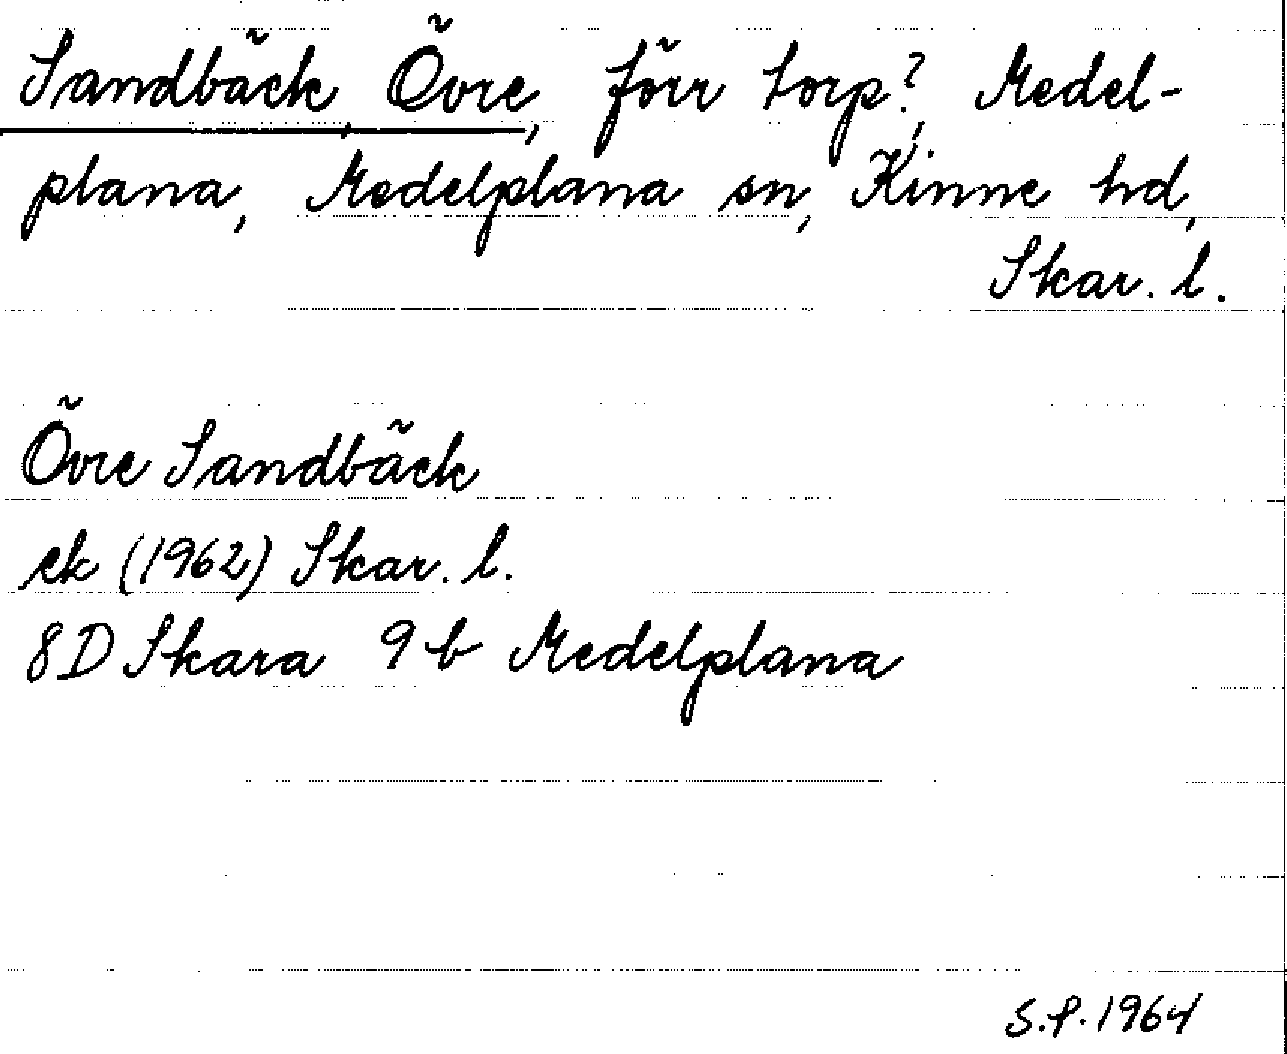 Sandbäck, Övre, förr torp?, Medel-
plana, Medelplana sn, Kinne hd,
Skar. l.
Övre Sandbäck
ek (1962) Skar. l.
8D Skara 9 b Medelplana
S.P. 1964